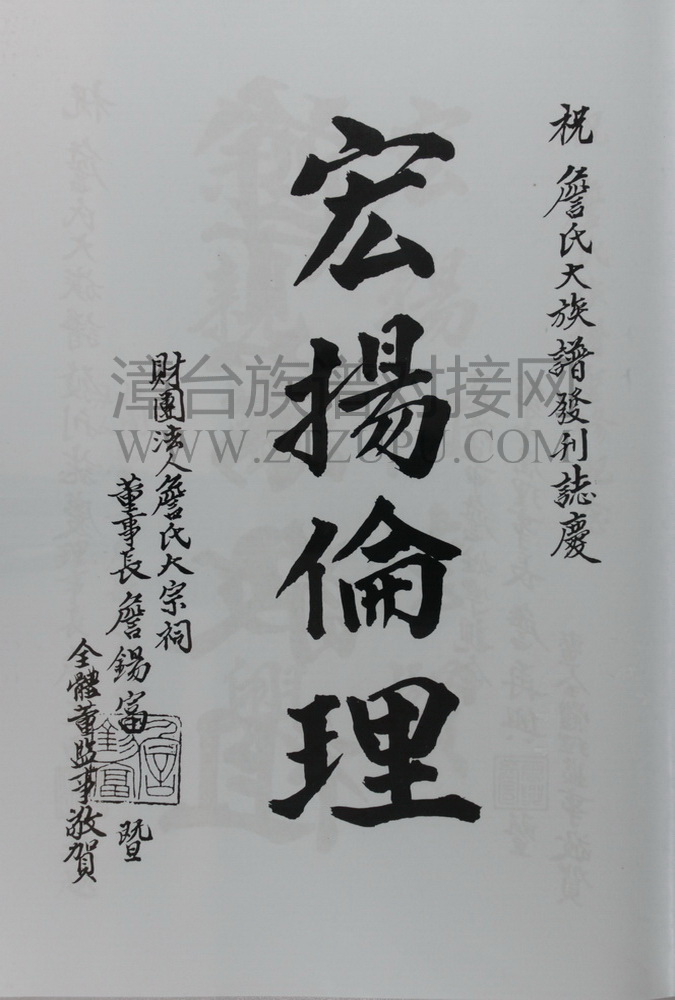 祝 詹氏大族譜發刊誌慶
宏揚倫理
財團法人詹氏大宗祠
董事長詹錫富 暨
全體董監事敬賀
漳台族谱对接网
WWW.ZTZUPU.COM